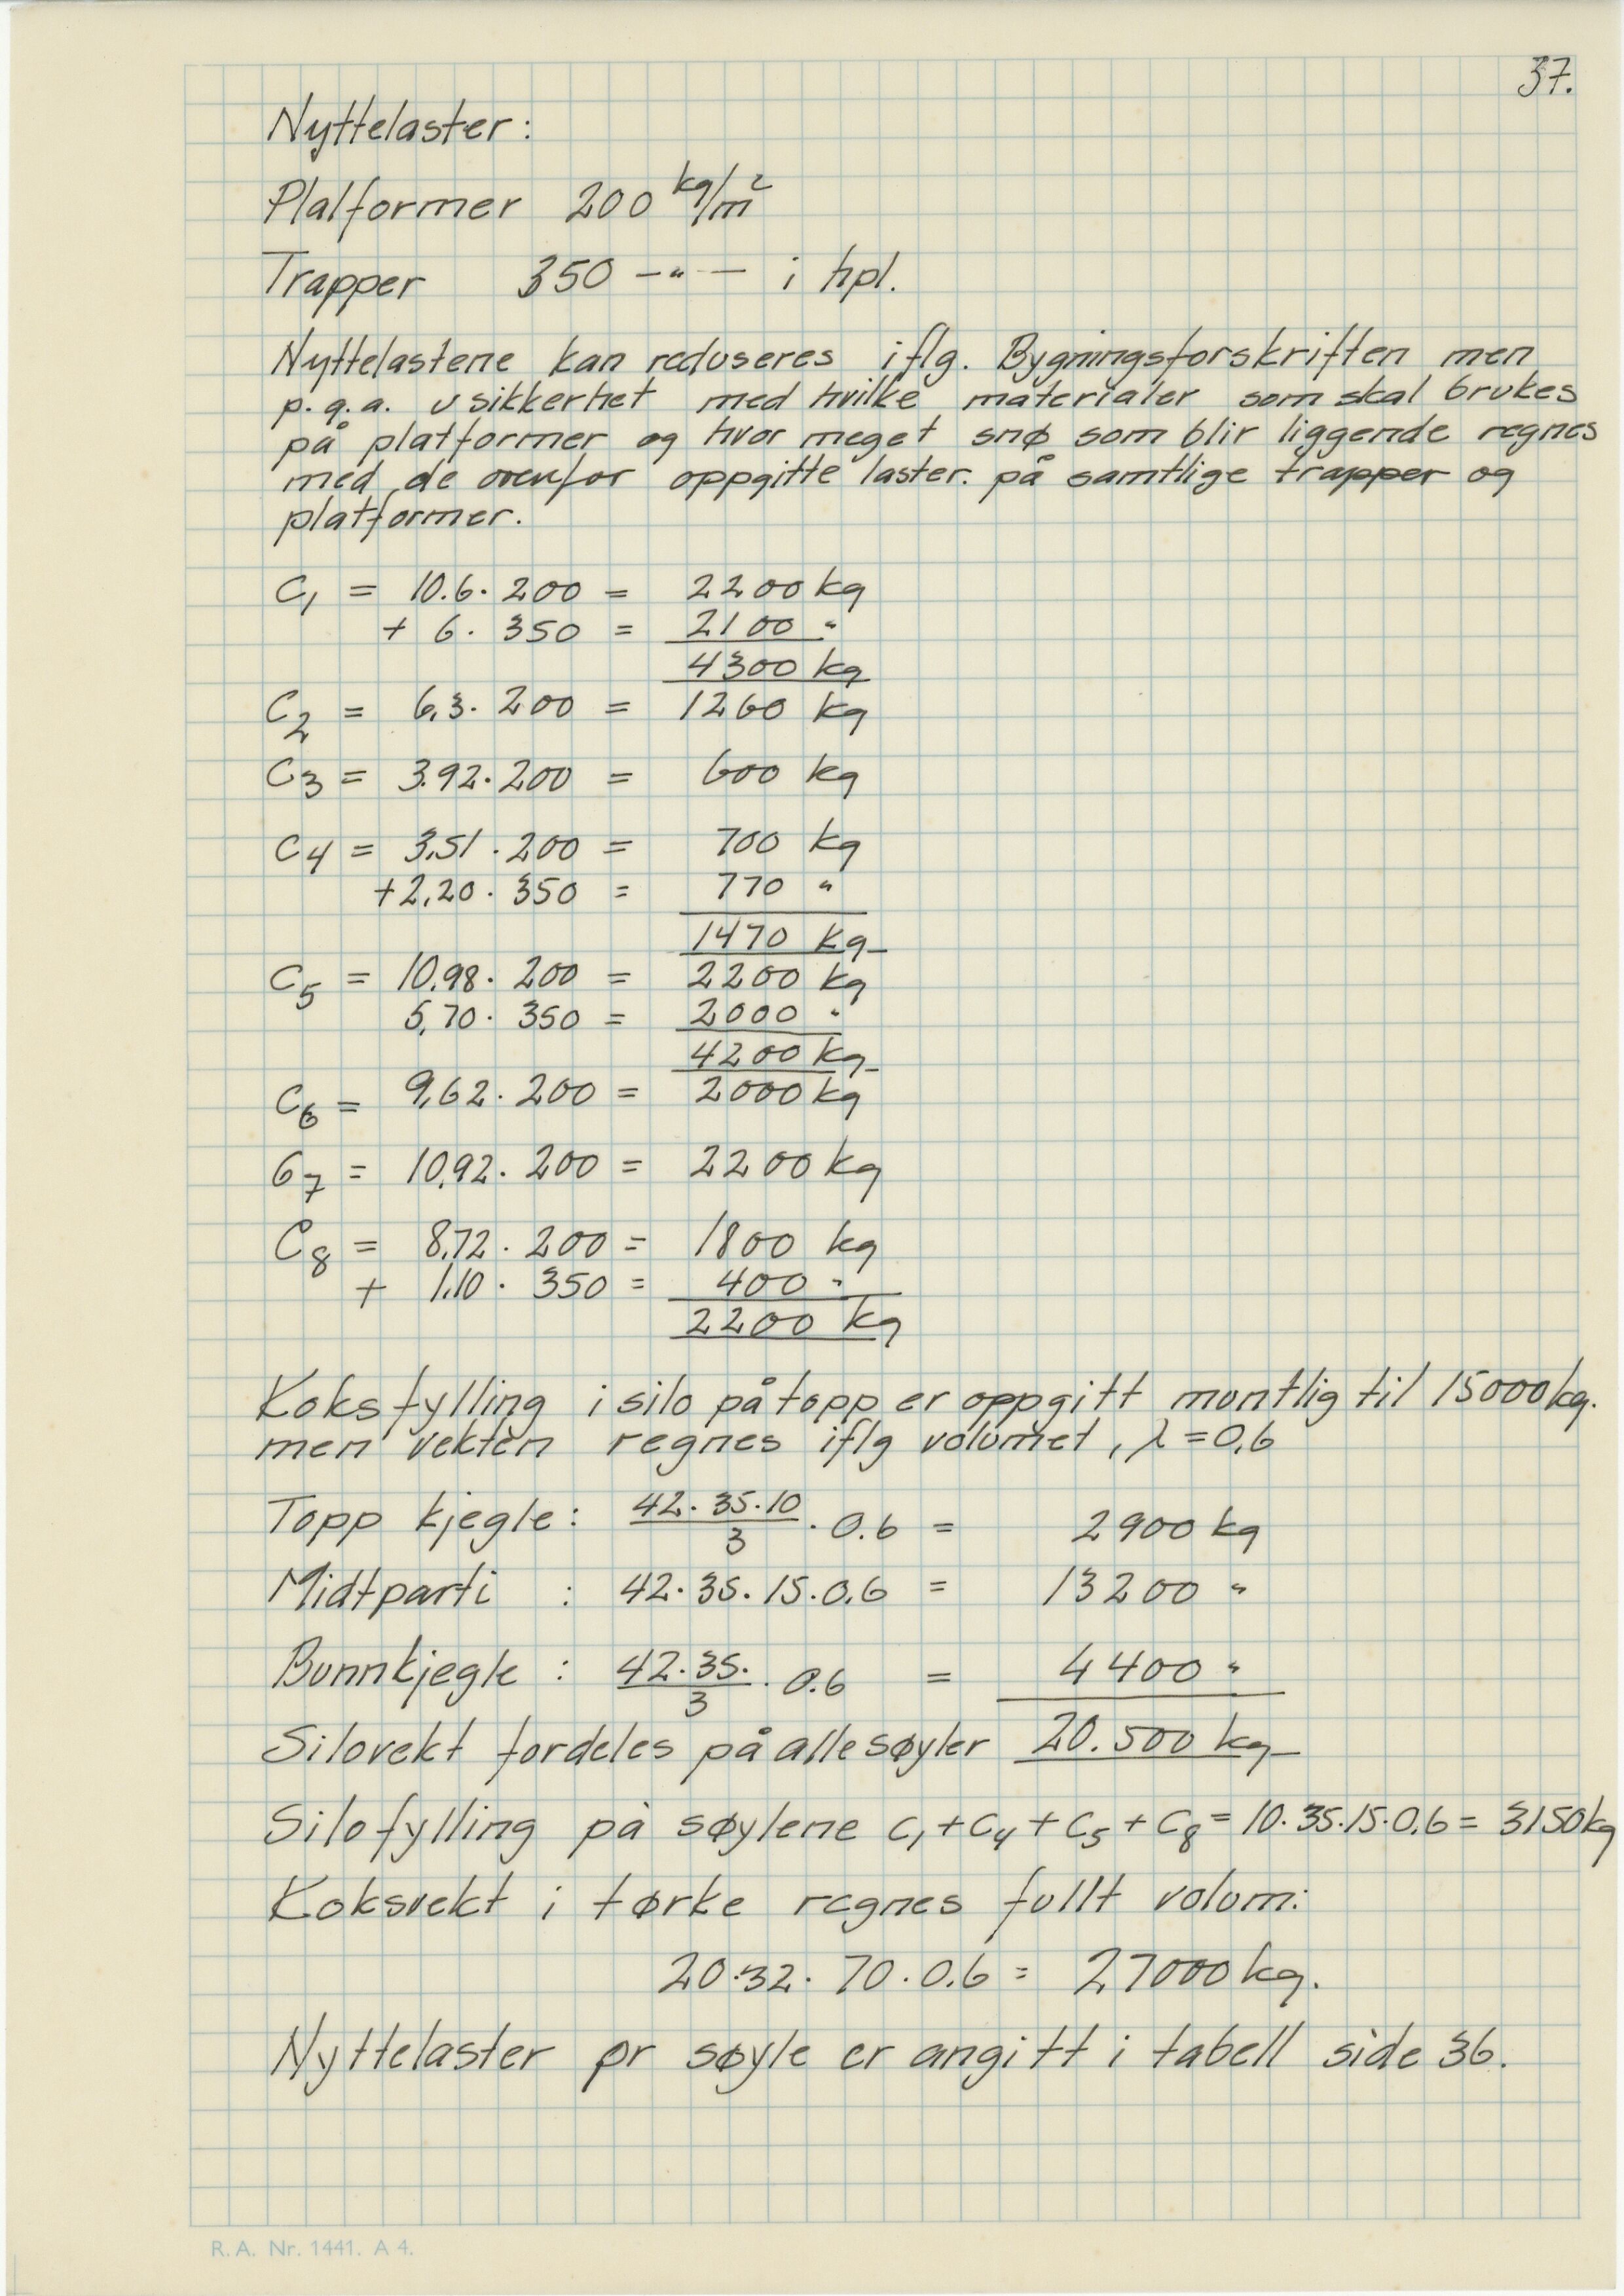 37.
Nyttelaster:
Platformer 200 kg/m²
Trapper 350 —"— i hpl.
Nyttelastene kan reduseres iflg. Bygningsforskriften men
p.g.a. usikkerhet med hvilke materialer som skal brukes
på platformer og hvor meget snø som blir liggende regnes
med de ovenfor oppgitte laster. på samtlige trapper og
platformer.
C₁ = 10.6 · 200 = 2200 kg
+ 6. 350 = 2100 "
4300 kg
C₂ = 6,3 · 200 = 1260 kg
C₃ = 3.92 · 200 = 600 kg
C₄ = 3,51 · 200 = 700 kg
+2,20 · 350 = 770 "
1470 kg
C₅ = 10,98 · 200 = 2200 kg
5,70 · 350 = 2000 "
4200 kg
C₆ = 9,62 · 200 = 2000 kg
C₇ = 10,92 · 200 = 2200 kg
C₈ = 8,72 · 200 = 1800 kg
+ 1,10 · 350 = 400 "
2200 kg
Koksfylling i silo på topp er oppgitt muntlig til 15000 kg.
men vekten regnes iflg volumet, λ = 0,6
Topp kjegle: 42·35·10/3 · 0.6 = 2900 kg
Midtparti : 42·35·15·0,6 = 13200 "
Bunnkjegle : 42·35·/3 · 0.6 = 4400 "
Silovekt fordeles på alle søyler 20.500 kg
Silofylling på søylene C₁+C₄+C₅+C₈ = 10·35·15·0,6 = 3150 kg
Koksvekt i tørke regnes fullt volum:
20·32·70·0.6 = 27000 kg.
Nyttelaster pr søyle er angitt i tabell side 36.
R.A. Nr. 1441. A 4.